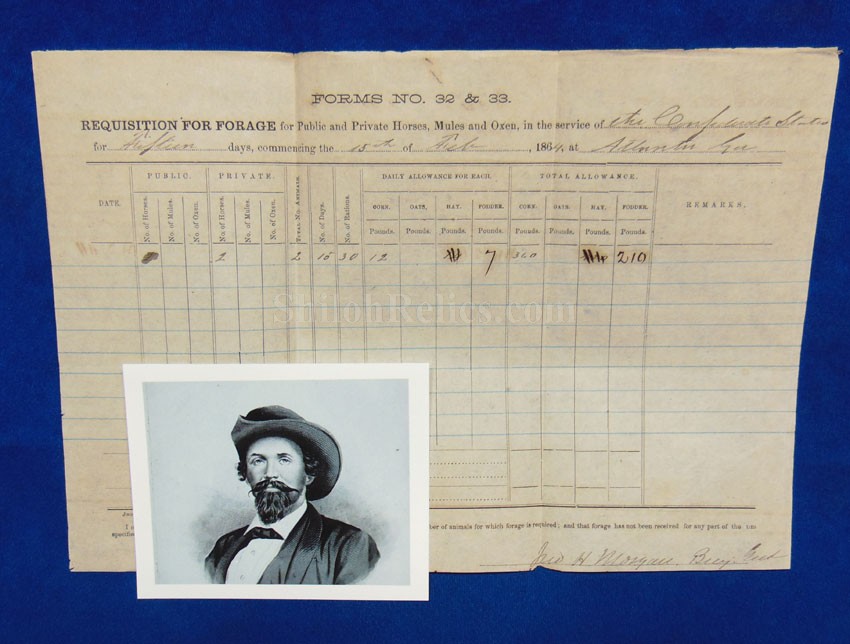 FORMS NO. 32 & 33.
REQUISITION FOR FORAGE for Public and Private Horses, Mules and Oxen, in the service of the Confederate States
for Fifteen days, commencing the 15th of Feb, 1864, at Atlanta Ga
PUBLIC. PRIVATE. DAILY ALLOWANCE FOR EACH. TOTAL ALLOWANCE.
DATE. No. of Horses. No. of Mules. No. of Oxen. No. of Horses. No. of Mules. No. of Oxen. TOTAL No. ANIMALS. No. of Days. No. of Rations. CORN. OATS. HAY. FODDER. CORN. OATS. HAY. FODDER. REMARKS.
Pounds. Pounds. Pounds. Pounds. Pounds. Pounds. Pounds. Pounds.
2 2 15 30 12 7 360 210
ShilohRelics.com
I
ber of animals for which forage is required; and that forage has not been received for any part of the
specified
Jno H Morgan, Brig Genl